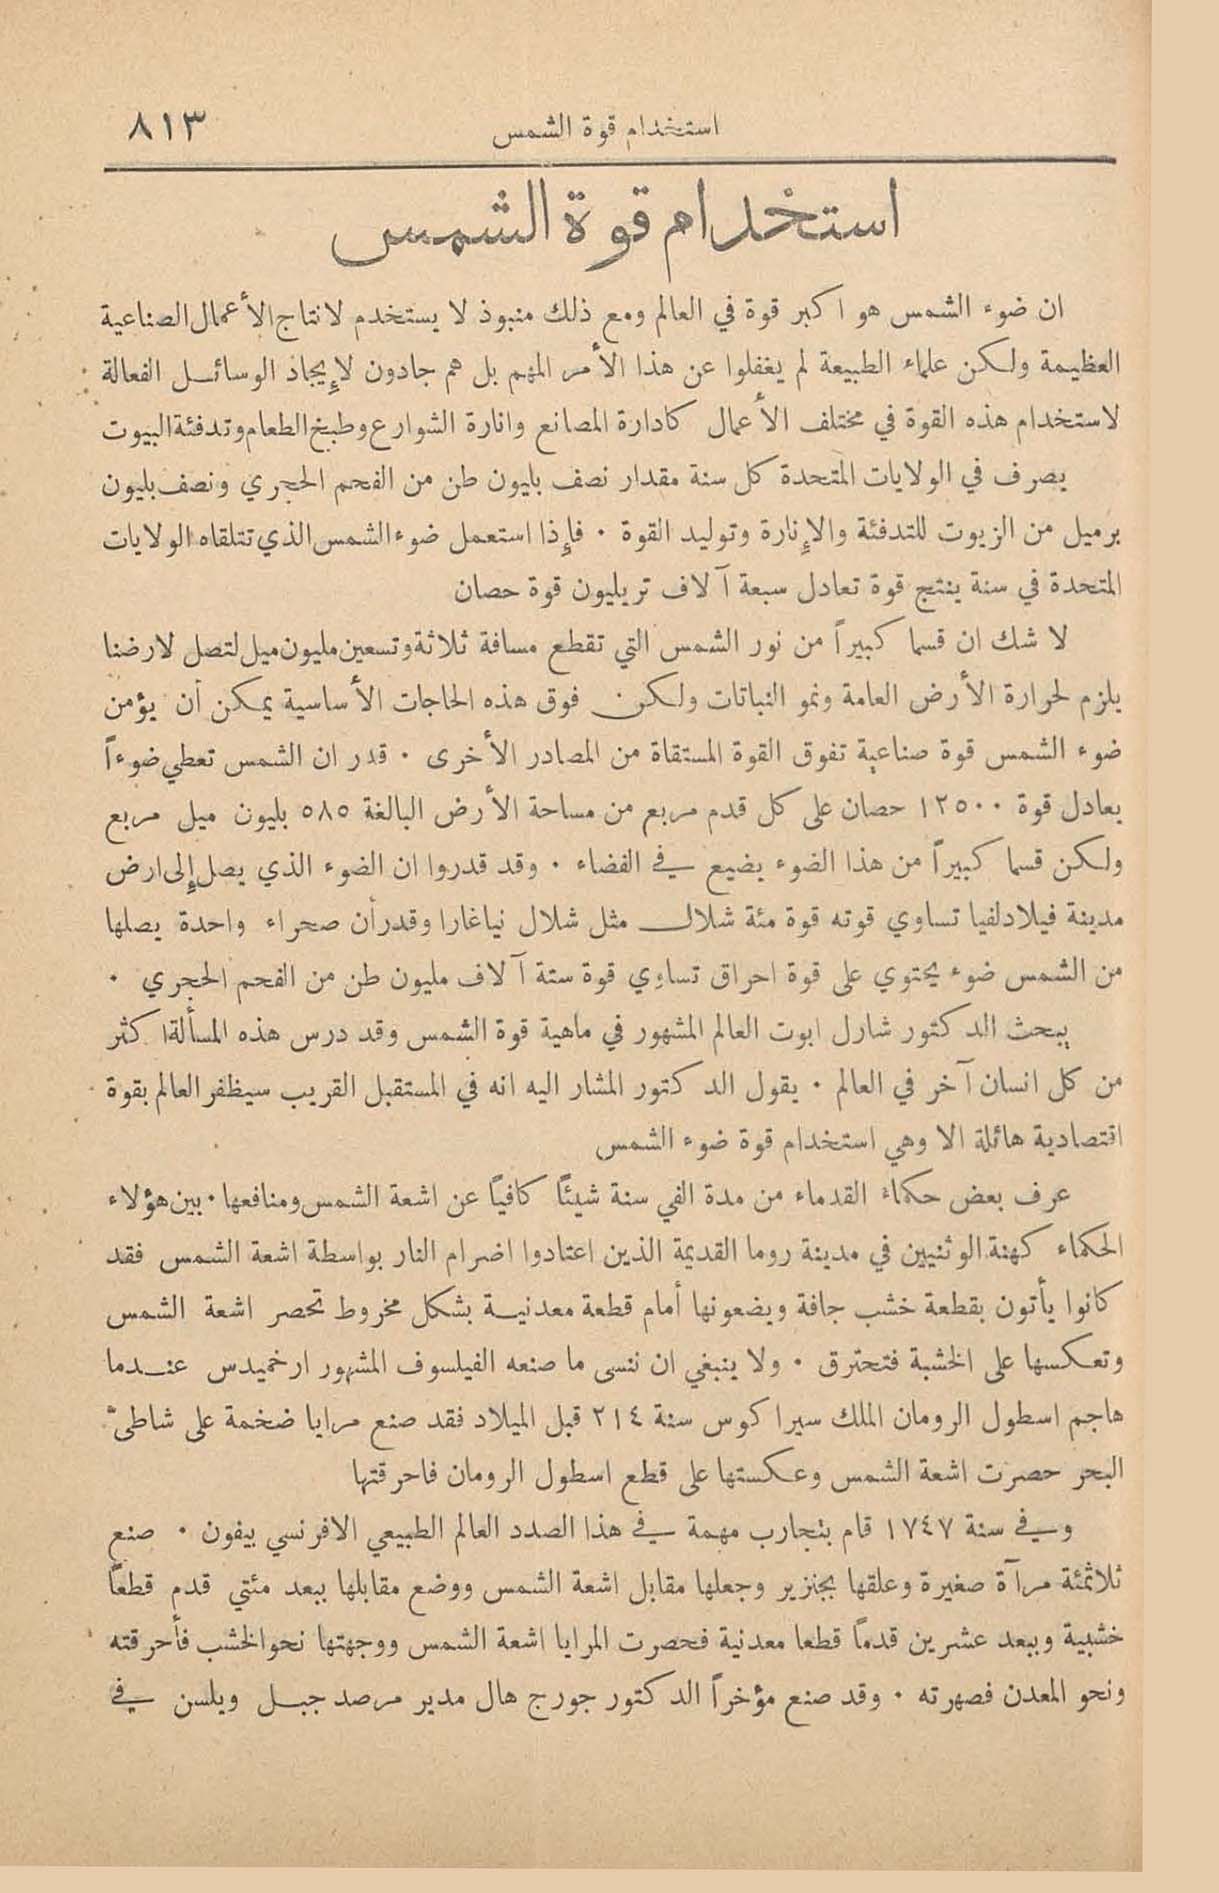 استخدام قوة الشمس ٨١٣
استخدام قوة الشمس
ان ضوء الشمس هو اكبر قوة في العالم ومع ذلك منبوذ لا يستخدم لانتاج الأعمال الصناعية
العظيمة ولكن علماء الطبيعة لم يغفلوا عن هذا الأمر المهم بل هم جادون لإيجاد الوسائل الفعالة
لاستخدام هذه القوة في مختلف الأعمال كادارة المصانع وانارة الشوارع وطبخ الطعام وتدفئة البيوت
يصرف في الولايات المتحدة كل سنة مقدار نصف بليون طن من الفحم الحجري ونصف بليون
برميل من الزيوت للتدفئة والإنارة وتوليد القوة . فإذا استعمل ضوء الشمس الذي تتلقاه الولايات
المتحدة في سنة ينتج قوة تعادل سبعة آلاف تريليون قوة حصان
لا شك ان قسما كبيراً من نور الشمس التي تقطع مسافة ثلاثة وتسعين مليون ميل لتصل لارضنا
يلزم لحرارة الأرض العامة ونمو النباتات ولكن فوق هذه الحاجات الأساسية يمكن أن يؤمن
ضوء الشمس قوة صناعية تفوق القوة المستقاة من المصادر الأخرى . قدر ان الشمس تعطي ضوءاً
يعادل قوة ١٢٥٠٠ حصان على كل قدم مربع من مساحة الأرض البالغة ٥٨٥ بليون ميل مربع
ولكن قسما كبيراً من هذا الضوء يضيع في الفضاء . وقد قدروا ان الضوء الذي يصل إلى ارض
مدينة فيلادلفيا تساوي قوته قوة مئة شلال مثل شلال نياغارا وقدر أن صحراء واحدة يصلها
من الشمس ضوء يحتوي على قوة احراق تساوي قوة ستة آلاف مليون طن من الفحم الحجري .
يبحث الدكتور شارل ابوت العالم المشهور في ماهية قوة الشمس وقد درس هذه المسألة اكثر
من كل انسان آخر في العالم . يقول الدكتور المشار اليه انه في المستقبل القريب سيظفر العالم بقوة
اقتصادية هائلة الا وهي استخدام قوة ضوء الشمس
عرف بعض حكماء القدماء من مدة الفي سنة شيئاً كافياً عن اشعة الشمس ومنافعها . بين هؤلاء
الحكماء كهنة الوثنيين في مدينة روما القديمة الذين اعتادوا اضرام النار بواسطة اشعة الشمس فقد
كانوا يأتون بقطعة خشب جافة ويضعونها أمام قطعة معدنية بشكل مخروط تحصر اشعة الشمس
وتعكسها على الخشبة فتحترق . ولا ينبغي ان ننسى ما صنعه الفيلسوف المشهور ارخميدس عندما
هاجم اسطول الرومان الملك سيراكوس سنة ٢١٤ قبل الميلاد فقد صنع مرايا ضخمة على شاطئ
البحر حصرت اشعة الشمس وعكستها على قطع اسطول الرومان فاحرقتها
وفي سنة ١٧٤٧ قام بتجارب مهمة في هذا الصدد العالم الطبيعي الافرنسي بيفون . صنع
ثلاثمئة مرآة صغيرة وعلقها بجنزير وجعلها مقابل اشعة الشمس ووضع مقابلها ببعد مئتي قدم قطعاً
خشبية وببعد عشرين قدماً قطعا معدنية فحصرت المرايا اشعة الشمس ووجهتها نحو الخشب فأحرقته
ونحو المعدن فصهرته . وقد صنع مؤخراً الدكتور جورج هال مدير مرصد جبل ويلسن في